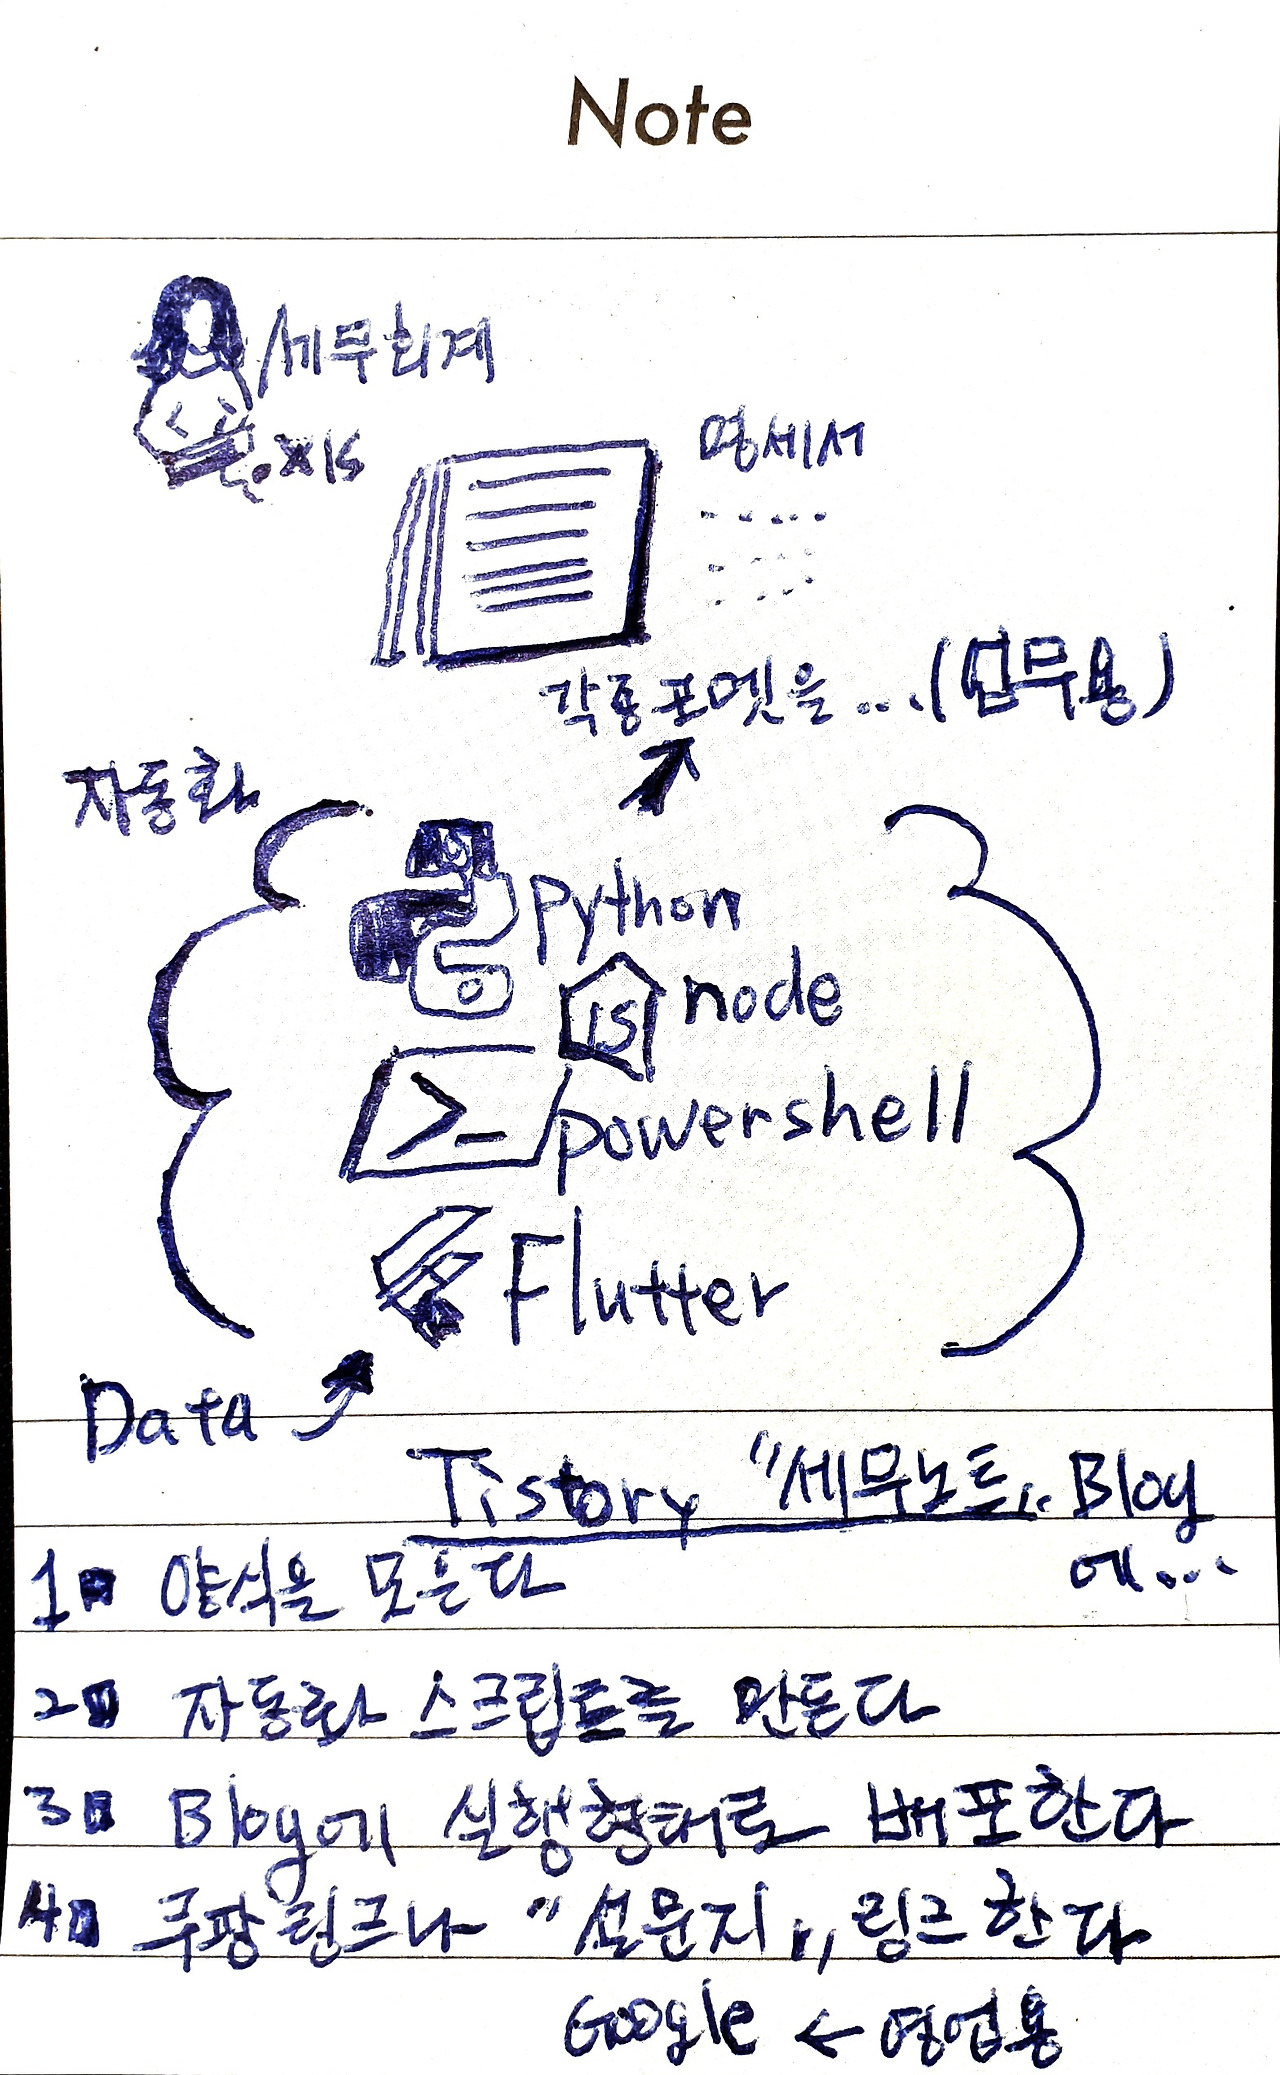 Note
세무회계
.xls
명세서
각종포멧을...(업무용)
자동화
python
JS node
>_ powershell
Flutter
Data
Tistory "세무노트" Blog
에...
1. 양식을 모은다
2. 자동화 스크립트를 만든다
3. Blog에 실행형태로 배포한다
4. 쿠팡링크나 "설문지" 링크한다
Google ← 영업용